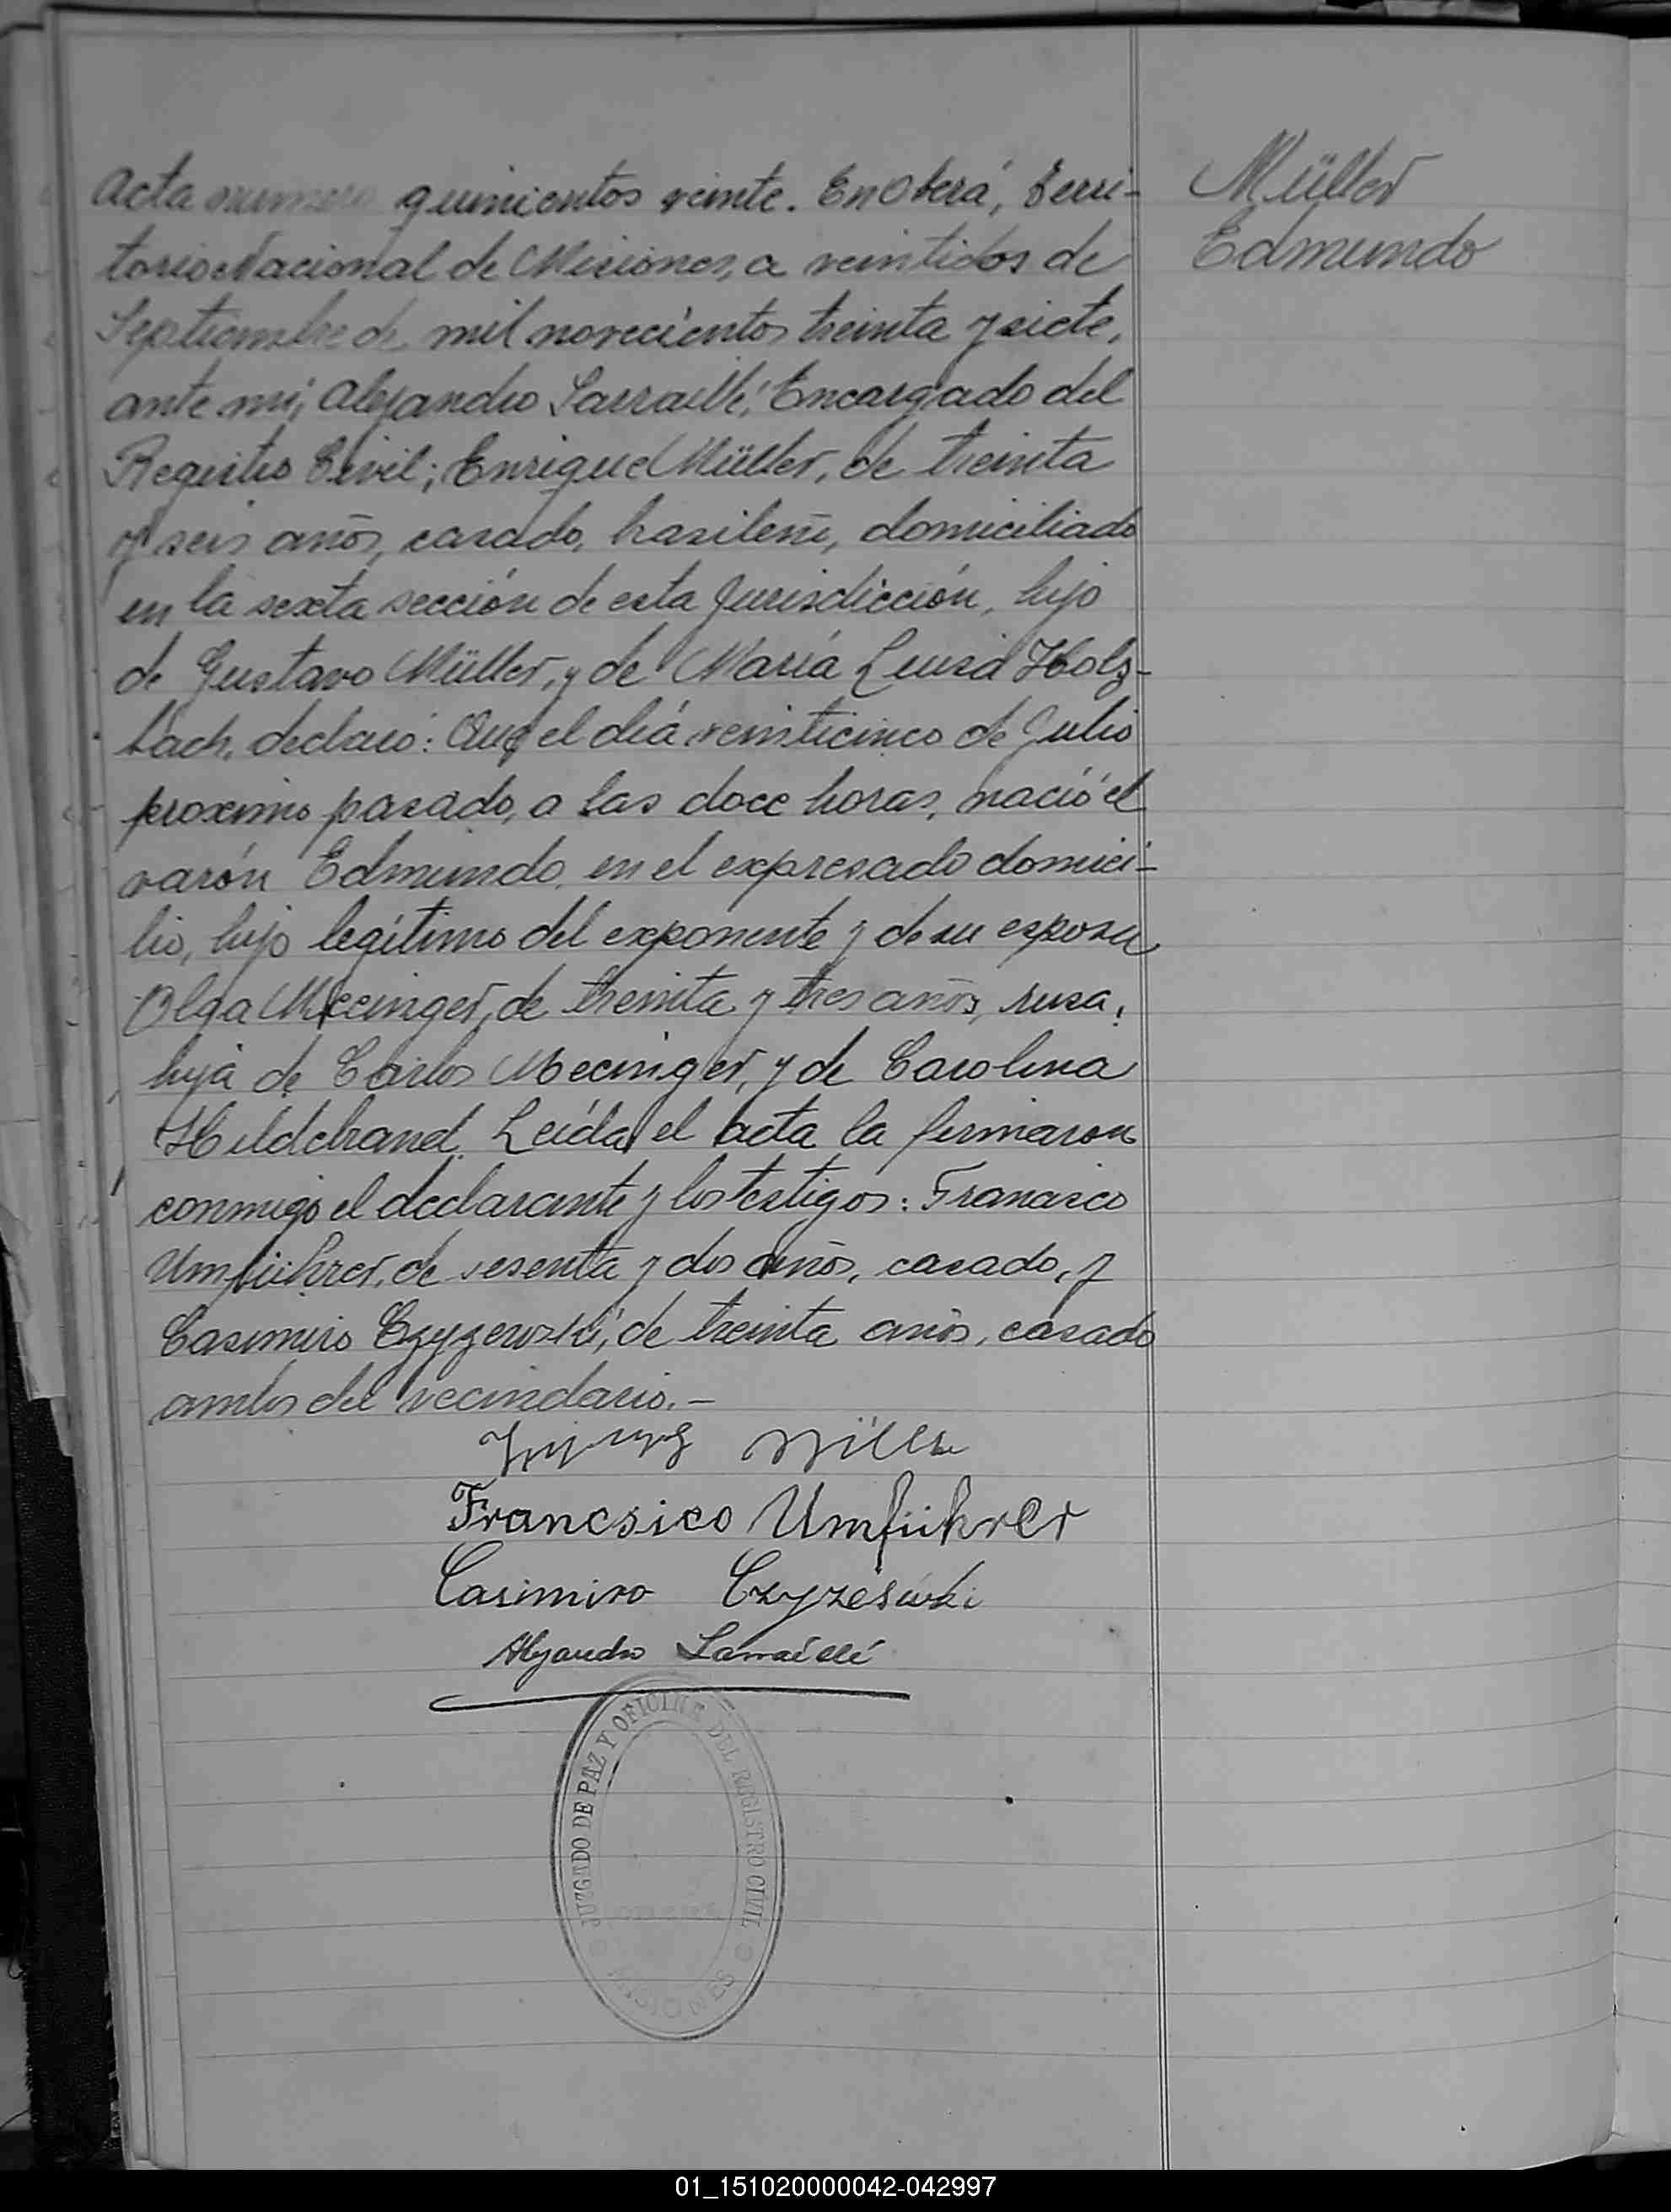 Acta numero quinientos veinte. En Oberá, Terri-
torio Nacional de Misiones, a veintidos de
Septiembre de mil novecientos treinta y siete,
ante mi, Alejandro Sarraillé, Encargado del
Registro Civil; Enrique Müller, de treinta
y seis años, casado, brasileño, domiciliado
en la sexta sección de esta Jurisdicción, hijo
de Gustavo Müller, y de María Luisa Holz-
bach, declaró: Que el día veinticinco de Julio
proximo pasado, a las doce horas, nació el
varón Edmundo, en el expresado domici-
lio, hijo legítimo del exponente y de su esposa
Olga Mecinger, de treinta y tres años, rusa,
hija de Carlos Mecinger, y de Carolina
Hildebrand. Leída el acta la firmaron
conmigo el declarante y los testigos: Francisco
Umfuhrer, de sesenta y dos años, casado, y
Casimiro Czyzewski, de treinta años, casado
ambos del vecindario.-
Müller
Edmundo
Müller
Francsico Umführer
Casimiro Czyzewski
Alejandro Sarraillé
JUZGADO DE PAZ Y OFICINA DEL REGISTRO CIVIL
MISIONES
01_151020000042-042997